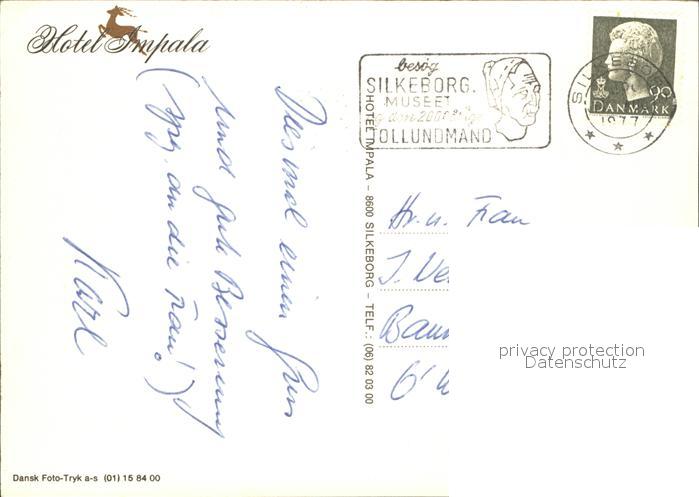 Hotel Impala
Diesmal einen Gruss
und gute Besserung
(spez. an die Frau!)
Karl
besøg
SILKEBORG
MUSEET
og den 2000årige
TOLLUNDMAND
SILKEBORG
1977
90
DANMARK
HOTEL IMPALA – 8600 SILKEBORG – TELF.: (06) 82 03 00
Hr. u. Frau
J. We
Bau
privacy protection
Datenschutz
Dansk Foto-Tryk a-s (01) 15 84 00